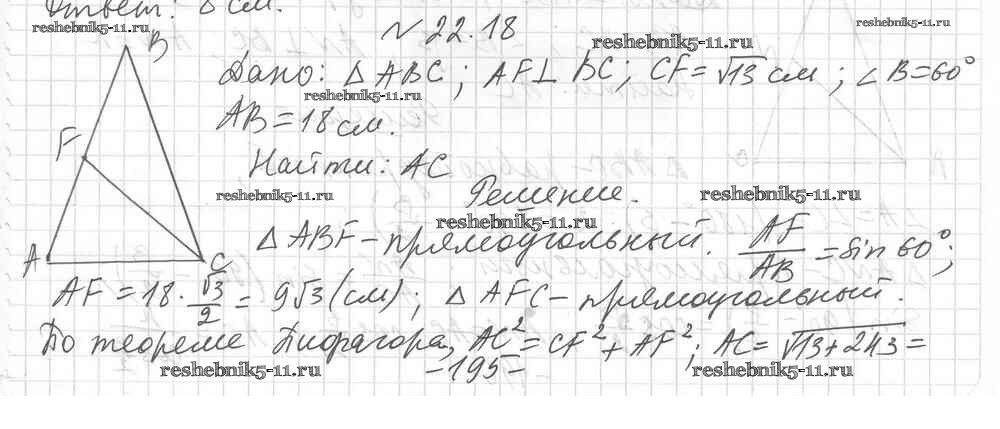 Ответ: 8 см.
reshebnik5-11.ru
reshebnik5-11.ru
№ 22.18
reshebnik5-11.ru
B
Дано: △ABC; AF⊥BC; CF=√13 см; ∠B=60°
reshebnik5-11.ru
AB=18 см.
F
Найти: AC
reshebnik5-11.ru
Решение.
reshebnik5-11.ru
reshebnik5-11.ru
△ABF - прямоугольный. AF/AB = sin 60°;
A
C
AF = 18 · √3/2 = 9√3 (см); △AFC - прямоугольный.
По теореме Пифагора, AC² = CF² + AF²; AC = √13+243 =
reshebnik5-11.ru
-195-
reshebnik5-11.ru